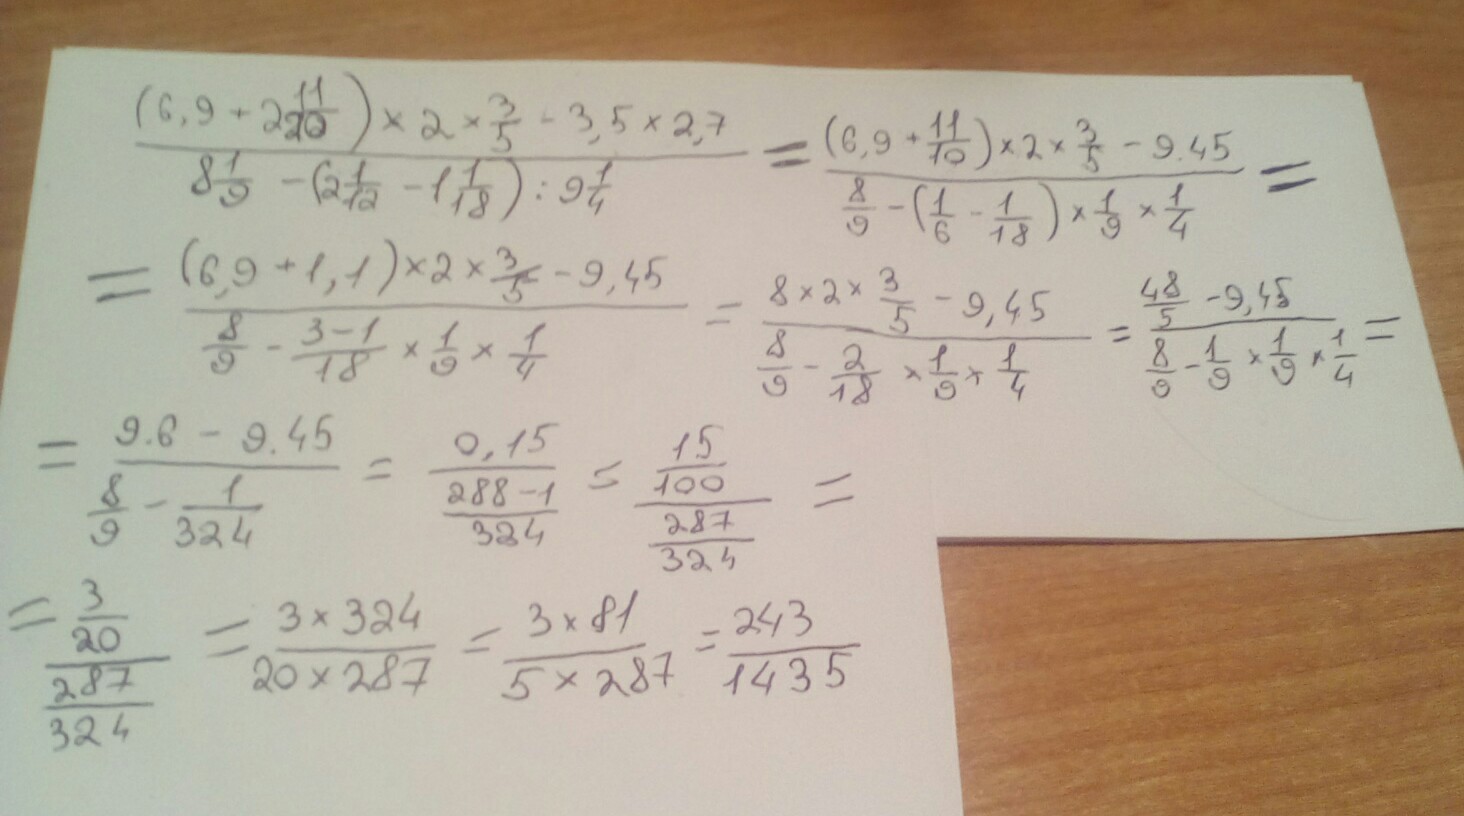 (6,9 + 2 11/20) × 2 × 3/5 - 3,5 × 2,7 / 8 1/9 - (2 1/12 - 1 1/18) : 9 1/4 = (6,9 + 11/10) × 2 × 3/5 - 9.45 / 8/9 - (1/6 - 1/18) × 1/9 × 1/4 =
= (6,9 + 1,1) × 2 × 3/5 - 9,45 / 8/9 - 3-1/18 × 1/9 × 1/4 = 8 × 2 × 3/5 - 9,45 / 8/9 - 2/18 × 1/9 × 1/4 = 48/5 - 9,45 / 8/9 - 1/9 × 1/9 × 1/4 =
= 9.6 - 9.45 / 8/9 - 1/324 = 0,15 / 288-1/324 = 15/100 / 287/324 =
= 3/20 / 287/324 = 3 × 324 / 20 × 287 = 3 × 81 / 5 × 287 = 243/1435